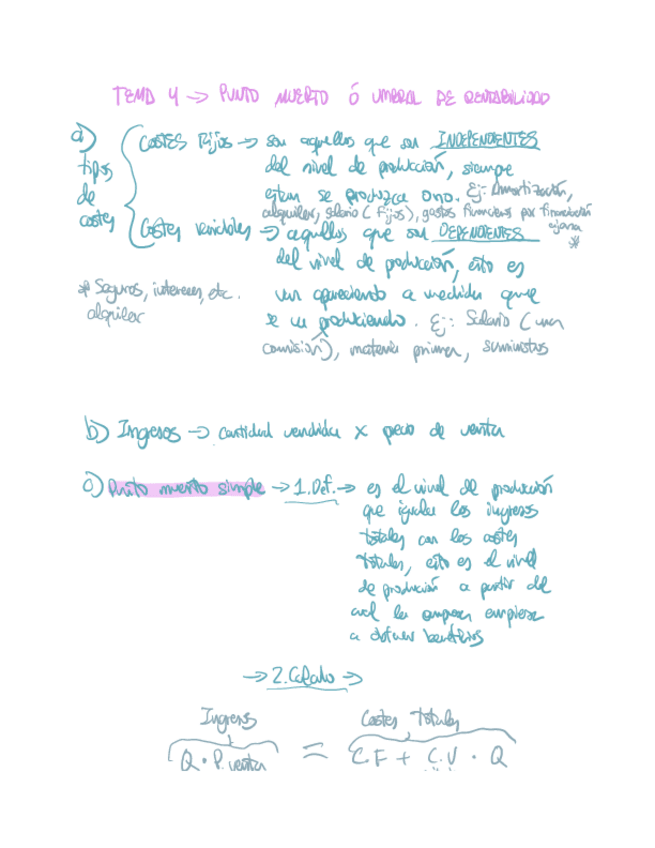 TEMA 4 → PUNTO MUERTO Ó UMBRAL DE RENTABILIDAD
a) tipos de costes
COSTES Fijos → son aquellos que son INDEPENDENTES
del nivel de producción, siempre
estan se produzca o no. Ej: Amortización,
alquiler, salario (Fijos), gastos financieros por financiación
ajena *
Costes variables → aquellos que son DEPENDIENTES
del nivel de producción, esto es
van apareciendo a medida que
se va produciendo. Ej: Salario (una
comisión), materia primera, suministros
* Seguros, intereses, etc.
alquiler
b) Ingresos → cantidad vendida x precio de venta
c) Punto muerto simple → 1. Def. → es el nivel de producción
que iguala los ingresos
totales con los costes
totales, esto es el nivel
de producción a partir del
cual la empresa empieza
a obtener beneficios
→ 2. Calculo →
Ingresos
Costes Totales
Q · P. venta = C F + C.V · Q